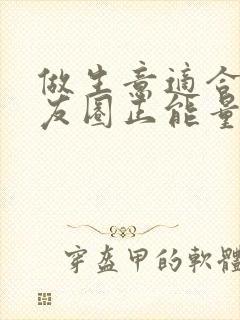 做生意適合
友圈正能量
穿盔甲的軟體